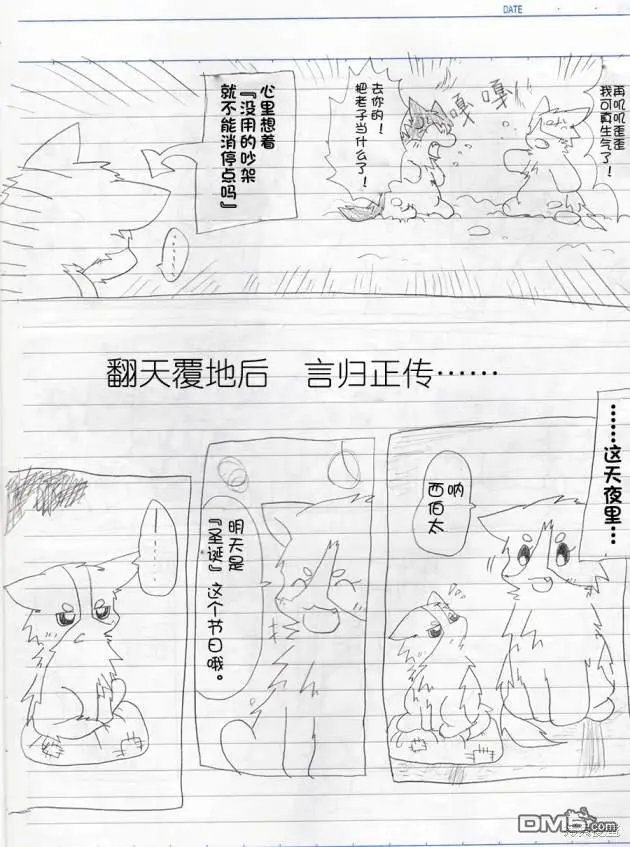 DATE
再叽叽歪歪
我可真生气了！
嘎
嘎
去你的！
把老子当什么了！
心里想着
『没用的吵架
就不能消停点吗』
……
翻天覆地后　言归正传……
……这天夜里…
呐
西伯太
明天是
『圣诞』这个节日哦。
………
DM5.com